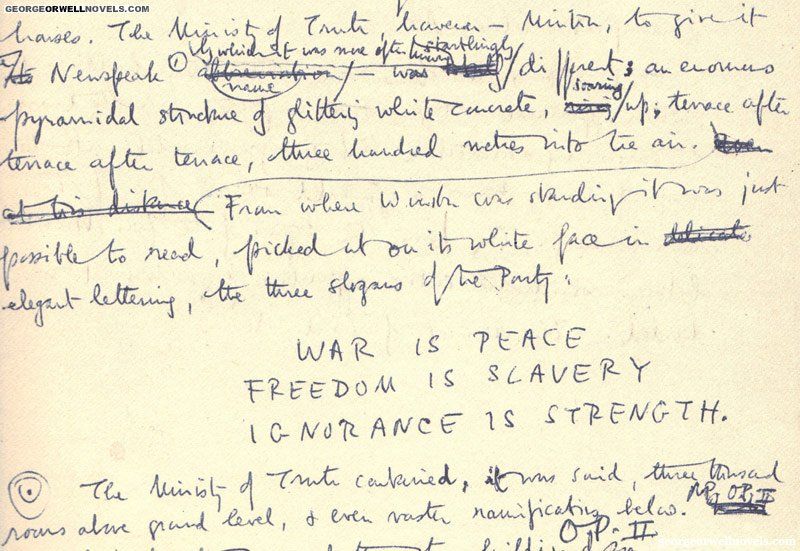 GEORGEORWELLNOVELS.COM
houses. The Ministry of Truth, however — Minitru, to give it
by which it was more often known startlingly
its Newspeak ① abbreviation name / — was / different; an enormous
soaring
pyramidal structure of glittering white concrete, rising / up, terrace after
terrace after terrace, three hundred metres into the air. Even
at this distance From where Winston was standing it was just
possible to read, picked out on its white face in delicate
elegant lettering, the three slogans of the Party:
WAR IS PEACE
FREEDOM IS SLAVERY
IGNORANCE IS STRENGTH.
The Ministry of Truth contained, it was said, three thousand
rooms above ground level, & even vaster ramifications below. O.P. II
O.P. II
georgeorwellnovels.com